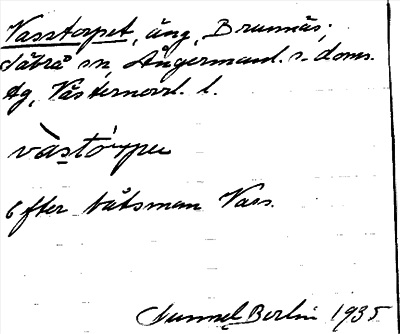 Vasstorpet, äng, Brunnäs;
Sätrå sn, Ångermanl. s. doms.
dg, Västernorrl. l.
vàstórpu
Efter båtsman Vass.
Gunnel Berlin 1935